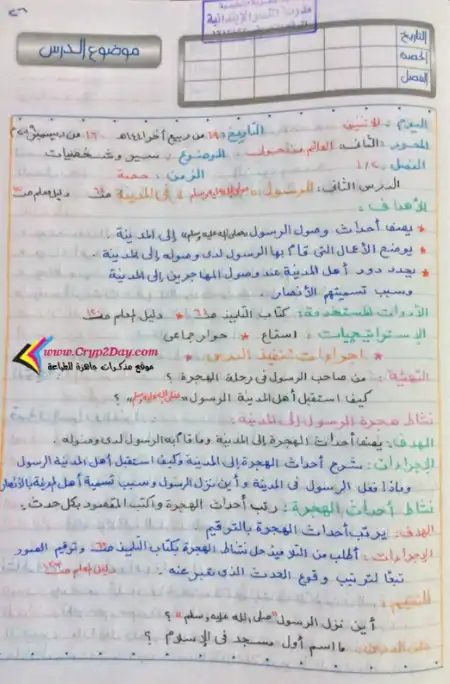 ٤٦
مدرسة النسر الابتدائية
موضوع الدرس
التاريخ
الحصة
الفصل
اليوم: الاثنين التاريخ: من ربيع آخر ١٤٤١هـ ١٦ من ديسمبر
المحور: الثانى: العالم من حولى الموضوع: سير وشخصيات
الفصل: ٢/١ الزمن: حصة
الدرس الثانى: الرسول "صلى الله عليه وسلم" فى المدينة ص٦ دليل المعلم ص
الأهداف:
* يصف أحداث وصول الرسول "صلى الله عليه وسلم" إلى المدينة
* يوضح الأعمال التى قام بها الرسول لدى وصوله إلى المدينة.
* يحدد دور أهل المدينة عند وصول المهاجرين إلى المدينة
وسبب تسميتهم الأنصار.
الأدوات المستخدمة: كتاب التلميذ ص٦ * دليل المعلم ص١٢٠
الإستراتيجيات: استماع * حوار جماعى
* إجراءات تنفيذ الدرس *
www.Cryp2Day.com
موقع مذكرات جاهزة للطباعة
التهيئة: من صاحب الرسول فى رحلة الهجرة ؟
كيف استقبل أهل المدينة الرسول "صلى الله عليه وسلم" ؟
نشاط هجرة الرسول إلى المدينة:
الهدف: يصف أحداث الهجرة إلى المدينة وما قام به الرسول لدى وصوله.
الإجراءات: شرح أحداث الهجرة إلى المدينة وكيف استقبل أهل المدينة الرسول
وماذا فعل الرسول فى المدينة وأين نزل الرسول وسبب تسمية أهل المدينة بالأنصار
نشاط أحداث الهجرة: رتب أحداث الهجرة واكتب المقصود بكل حدث.
الهدف: يرتب أحداث الهجرة بالترقيم
الإجراءات: أطلب من التلاميذ حل نشاط الهجرة بكتاب التلميذ ص٦ وترقيم الصور
تبعًا لترتيب وقوع الحدث الذى تعبر عنه. دليل المعلم ص١٢٣
التقييم:
أين نزل الرسول "صلى الله عليه وسلم" ؟
ما اسم أول مسجد فى الإسلام ؟